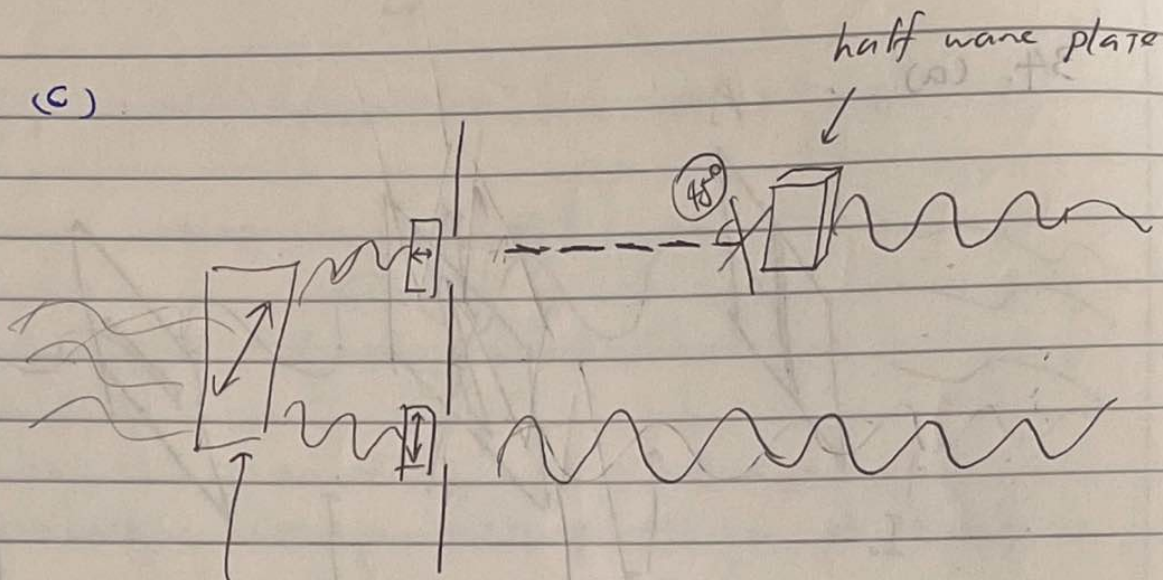 half wave plate
(C)
45°